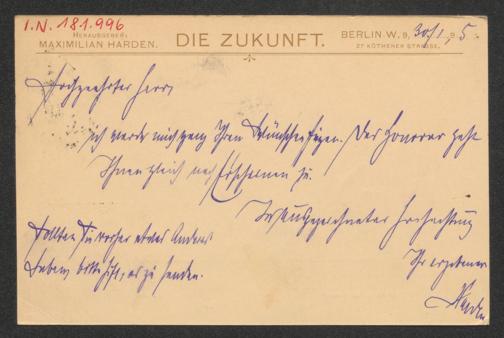 I.N. 181.996
HERAUSGEBER:
MAXIMILIAN HARDEN.
DIE ZUKUNFT.
BERLIN.W.9, 30/1 95.
27 KÖTHENER STRASSE.
Hochgeehrter Herr,
ich werde mich ganz Ihren Wünschen fügen. Das Honorar geht
Ihnen gleich nach Erscheinen zu.
In ausgezeichneter Hochachtung
Ihr ergebener
Harden
Sollten Sie vorher etwas Anderes
haben, bitte ich, es zu senden.